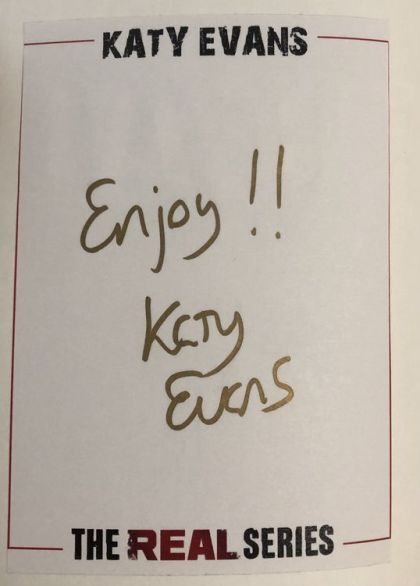 KATY EVANS
Enjoy !!
Katy
Evans
THE REAL SERIES